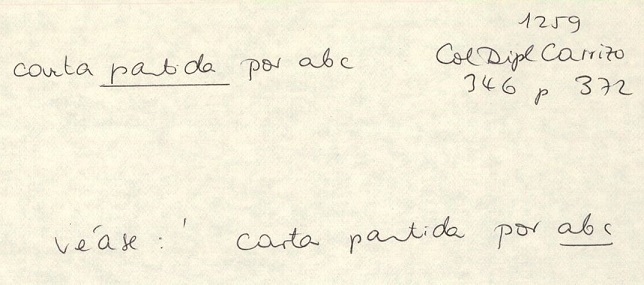 1259
carta partida por abc Col Dipl Carrizo
346 p 372
véase: ' carta partida por abc